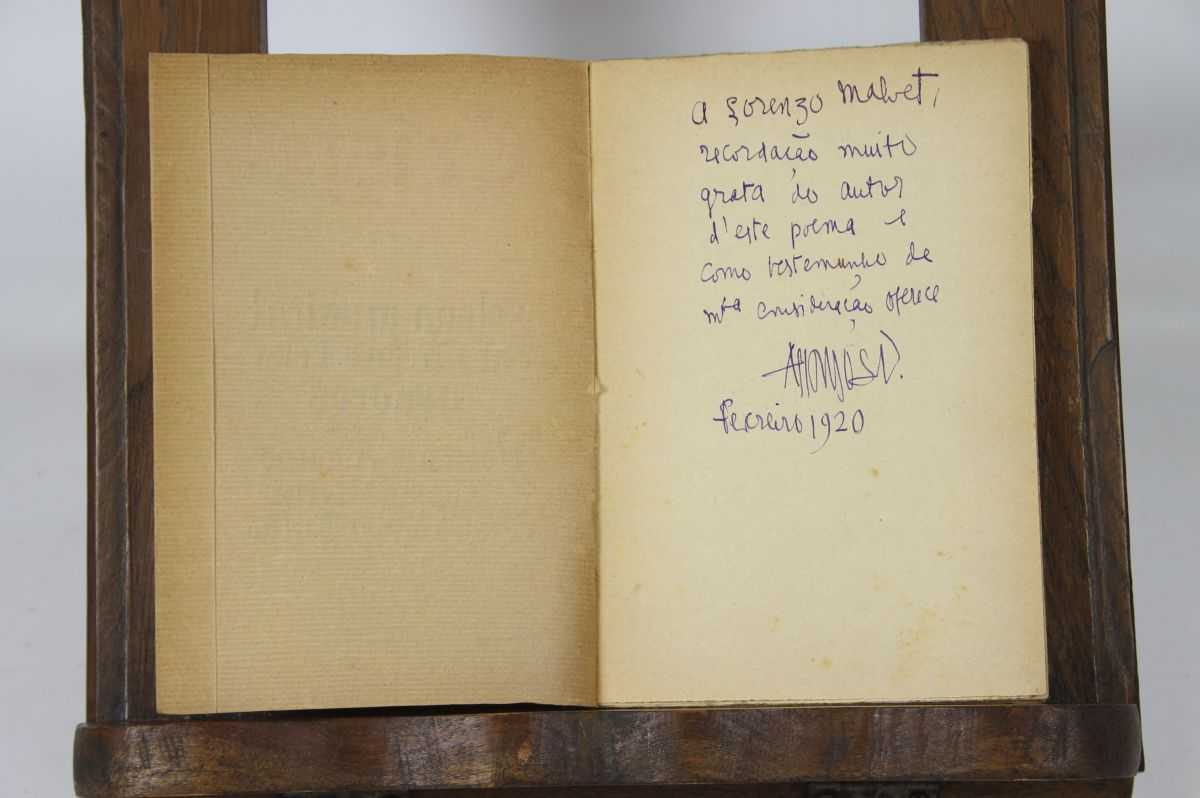 A Lorenzo Malvet,
recordação muito
grata do autor
d'este poema e
como testemunho de
mta consideração oferece
Fevreiro 1920